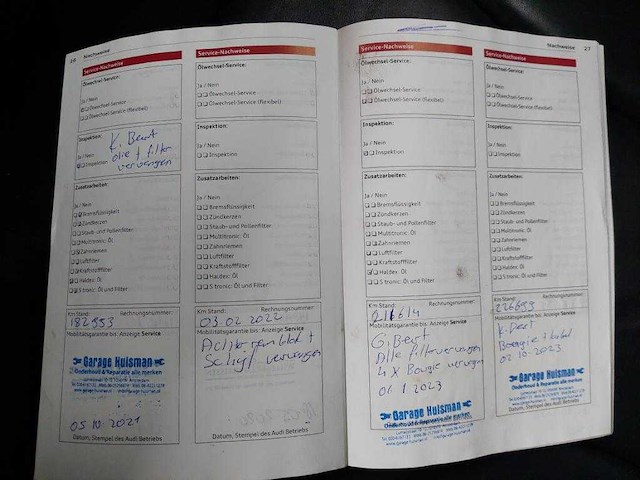 26 Nachweise
Service-Nachweise
Ölwechsel-Service:
Ja / Nein
Ölwechsel-Service
Ölwechsel-Service (flexibel)
Inspektion:
K. Bert
olie + filter
vervangen
Ja / Nein
Inspektion
Zusatzarbeiten:
Ja / Nein
Bremsflüssigkeit
Zündkerzen
Staub- und Pollenfilter
Multitronic: Öl
Zahnriemen
Luftfilter
Kraftstofffilter
Haldex: Öl
S tronic: Öl und Filter
Km Stand: Rechnungsnummer:
182553
Mobilitätsgarantie bis: Anzeige Service
Garage Huisman
Onderhoud & Reparatie alle merken
05 10 2021
Datum, Stempel des Audi Betriebs
Service-Nachweise
Ölwechsel-Service:
Ja / Nein
Ölwechsel-Service
Ölwechsel-Service (flexibel)
Inspektion:
Ja / Nein
Inspektion
Zusatzarbeiten:
Ja / Nein
Bremsflüssigkeit
Zündkerzen
Staub- und Pollenfilter
Multitronic: Öl
Zahnriemen
Luftfilter
Kraftstofffilter
Haldex: Öl
S tronic: Öl und Filter
Km Stand: Rechnungsnummer:
03 02 2022
Mobilitätsgarantie bis: Anzeige Service
vervangen
Datum, Stempel des Audi Betriebs
Nachweise 27
Service-Nachweise
Ölwechsel-Service:
Ja / Nein
Ölwechsel-Service
Ölwechsel-Service (flexibel)
Inspektion:
Ja / Nein
Inspektion
Zusatzarbeiten:
Ja / Nein
Bremsflüssigkeit
Zündkerzen
Staub- und Pollenfilter
Multitronic: Öl
Zahnriemen
Luftfilter
Kraftstofffilter
Haldex: Öl
S tronic: Öl und Filter
Km Stand: Rechnungsnummer:
216614
Mobilitätsgarantie bis: Anzeige Service
G. Bert
Alle filter vervangen
4 X Bougie vervangen
01 2023
Garage Huisman
Onderhoud & Reparatie alle merken
Datum, Stempel des Audi Betriebs
Service-Nachweise
Ölwechsel-Service:
Ja / Nein
Ölwechsel-Service
Ölwechsel-Service (flexibel)
Inspektion:
Ja / Nein
Inspektion
Zusatzarbeiten:
Ja / Nein
Bremsflüssigkeit
Zündkerzen
Staub- und Pollenfilter
Multitronic: Öl
Zahnriemen
Luftfilter
Kraftstofffilter
Haldex: Öl
S tronic: Öl und Filter
Km Stand: Rechnungsnummer:
Mobilitätsgarantie bis: Anzeige Service
02 10 2023
Garage Huisman
Onderhoud & Reparatie alle merken
Datum, Stempel des Audi Betriebs